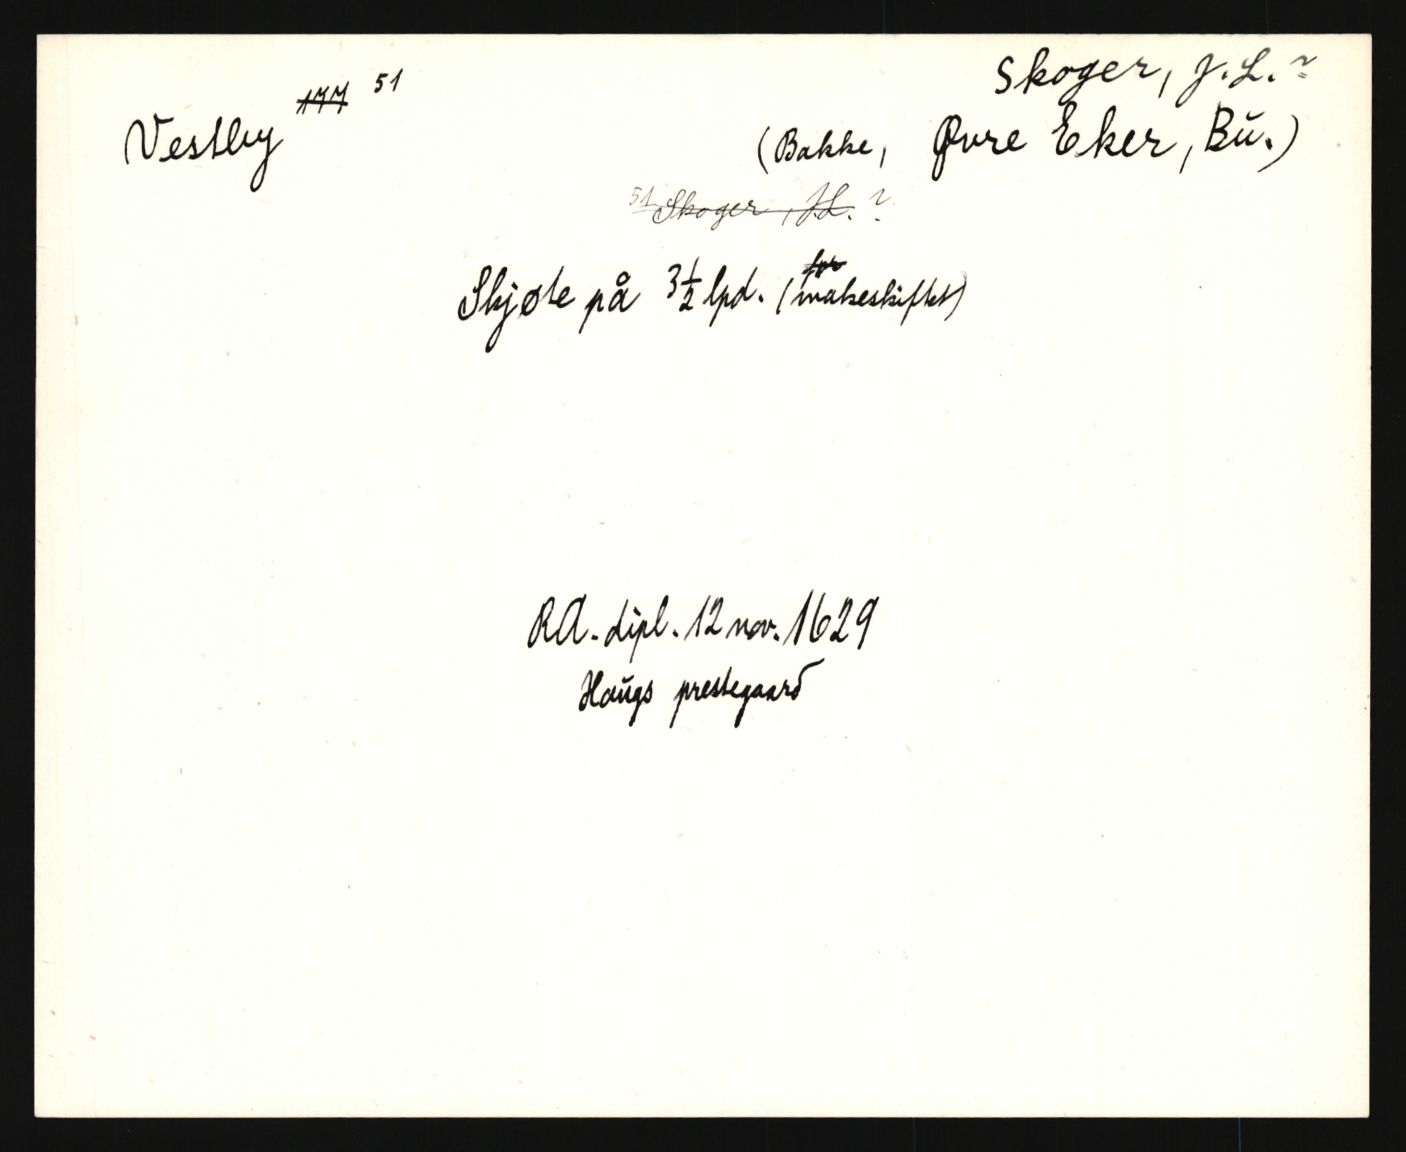 Skoger, J.L.?
Vestby 177 51
(Bakke, Øvre Eker, Bu.)
51 Skoger, J.L. ?
for
Skjøte på 3 1/2 lpd. (makeskiftet)
RA. dipl. 12 nov. 1629
Haugs prestegaard